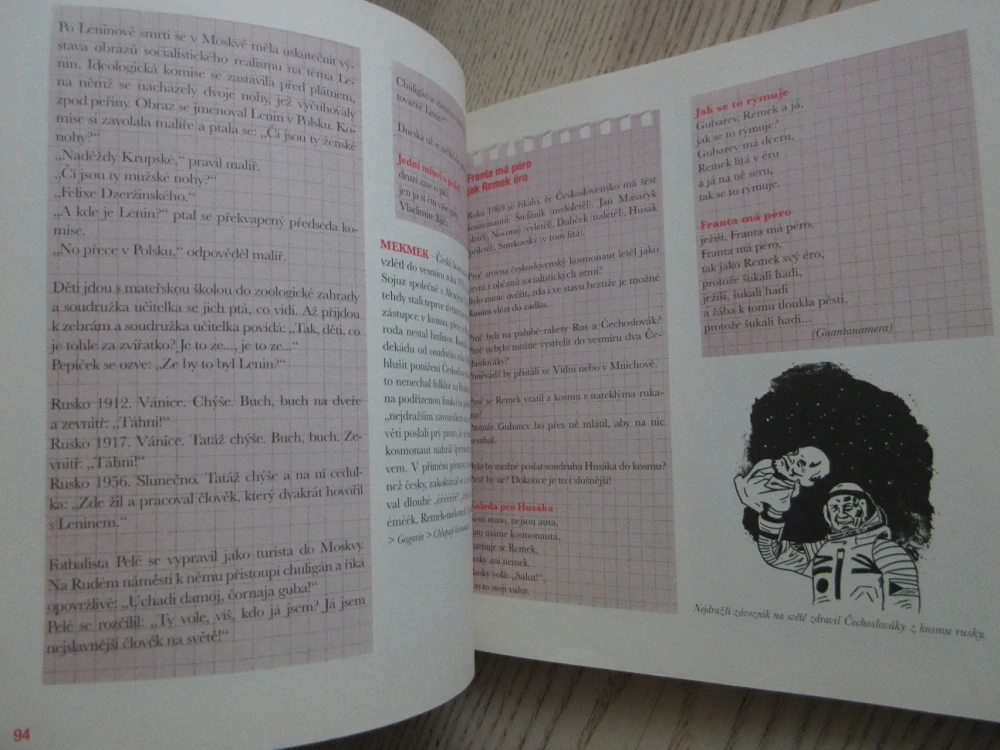 Po Leninově smrti se v Moskvě měla uskutečnit vý-
stava obrazů socialistického realismu na téma Le-
nin. Ideologická komise se zastavila před plátnem,
na němž se nacházely dvoje nohy, jež vyčuhovaly
zpod peřiny. Obraz se jmenoval Lenin v Polsku. Ko-
mise si zavolala malíře a ptala se: „Čí jsou ty ženské
nohy?“
„Naděždy Krupské,“ pravil malíř.
„Čí jsou ty mužské nohy?“
„Felixe Dzeržinského.“
„A kde je Lenin?“ ptal se překvapený předseda ko-
mise.
„No přece v Polsku,“ odpověděl malíř.
Děti jdou s mateřskou školou do zoologické zahrady
a soudružka učitelka se jich ptá, co vidí. Až přijdou
k zebrám a soudružka učitelka povídá: „Tak, děti, co
je tohle za zvířátko? Je to ze..., je to ze...“
Pepíček se ozve: „Že by to byl Lenin?“
Rusko 1912. Vánice. Chýše. Buch, buch na dveře
a zevnitř: „Táhni!“
Rusko 1917. Vánice. Tatáž chýše. Buch, buch. Ze-
vnitř: „Táhni!“
Rusko 1956. Slunečno. Tatáž chýše a na ní cedul-
ka: „Zde žil a pracoval člověk, který dvakrát hovořil
s Leninem.“
Fotbalista Pelé se vypravil jako turista do Moskvy.
Na Rudém náměstí k němu přistoupí chuligán a říká
opovržlivě: „Uchadi damoj, čornaja guba!“
Pelé se rozčílil: „Ty vole, víš, kdo já jsem? Já jsem
nejslavnější člověk na světě!“
94
Jedni mluví o
druzí zase o
jen já si čtu
Vladimir
MEKMEK - Český
vzlétl do vesmíru roku
Sojuz společně s
tehdy stali teprve
zástupce v kosmu,
roda nestal hrdinou.
dekádu od
hlušit ponížení
to nenechal folklor na
na podřízenou
„nejdražším závozníkem
věti poslali prý proto, že
kosmonaut nahrál
vem. V přímém
než česky, zakoktával se
val dlouhé
éméček, Remek-mek-mek
> Gagarin >
Franta má péro
jak Remek éro
Roku 1969 se říkalo, že Československo má šest
kosmonautů: Štefánik (nedoletěl), Jan Masaryk
Novotný (vyletěl), Dubček (naletěl), Husák
Smrkovský (v tom lítá).
Proč zrovna československý kosmonaut letěl jako
první z občanů socialistických zemí?
Bylo nutné ověřit, zda i ve stavu beztíže je možné
Rusům vlézt do zadku.
Proč byli na palubě rakety Rus a Čechoslovák?
Proč nebylo možné vystřelit do vesmíru dva Če-
choslováky?
Poněvadž by přistáli ve Vídni nebo v Mnichově.
Proč se Remek vrátil z kosmu s nateklýma ruka-
ma?
Protože Gubarev ho přes ně mlátil, aby na nic
nesahal.
Bylo by možné poslat soudruha Husáka do kosmu?
Proč by ne? Dokonce je to i slušnější!
pro Husáka
Není maso, nejsou auta,
zato máme kosmonauta,
jmenuje se Remek,
česky ani nemek,
rusky volá: „Salut!“,
to stojí valut.
Jak se to rýmuje
Gubarev, Remek a já,
jak se to rýmuje?
Gubarev má dceru,
Remek lítá v éru
a já na ně seru,
tak se to rýmuje.
Franta má péro
ježíši, Franta má péro,
Franta má péro,
tak jako Remek svý éro,
protože šukali hadi,
ježíši, šukali hadi
a žába k tomu tloukla pěstí,
protože šukali hadi...
(Guantanamera)
Nejdražší závozník na světě zdravil Čechoslováky z kosmu rusky.